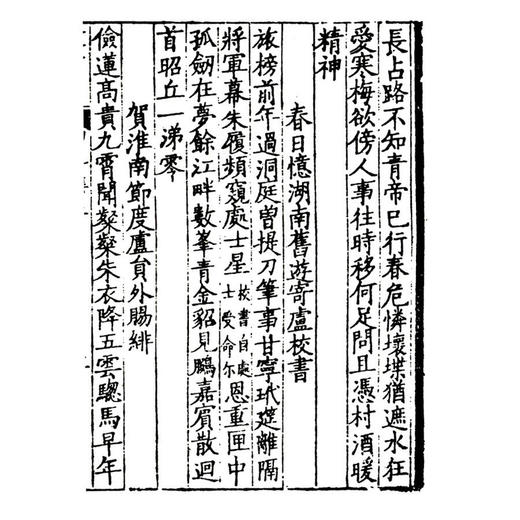 長占路不知青帝已行春危憐壞堞猶遮水狂
愛寒梅欲傍人事往時移何足問且憑村酒暖
精神
春日憶湖南舊遊寄盧校書
旅榜前年過洞庭曾提刀筆事甘寧玳筵離隔
將軍幕朱履頻窺處士星校書自處士受命尔恩重匣中
孤劒在夢餘江畔數峯青金貂見鵬嘉賓散迴
首昭丘一涕零
賀淮南節度盧員外賜緋
儉蓮高貴九霄聞粲粲朱衣降五雲驄馬早年